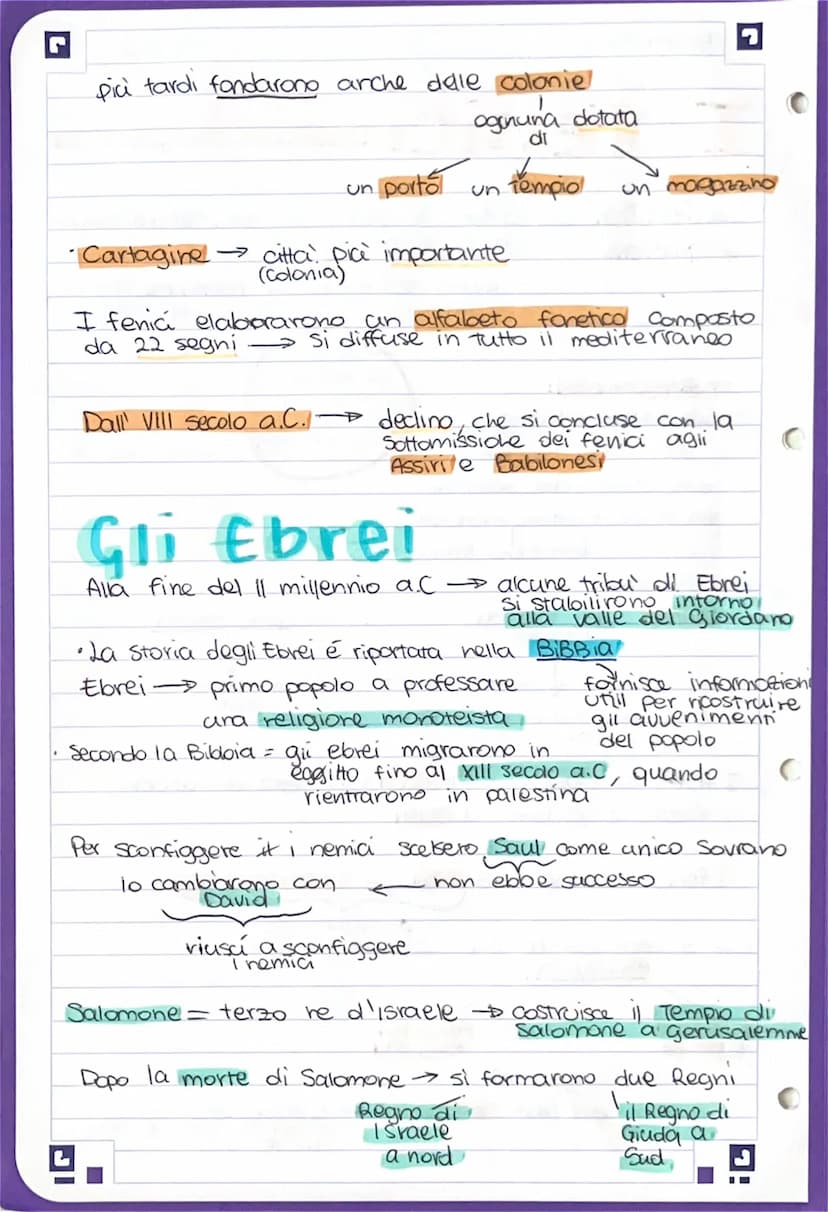 più tardi fondarono anche delle colonie
ognuna dotata
di
un porto un tempio un magazzino
· Cartagine → città più importante
(colonia)
I fenici elaborarono un alfabeto fonetico composto
da 22 segni → si diffuse in tutto il mediterraneo
Dall' VIII secolo a.C. → declino, che si concluse con la
sottomissione dei fenici agli
Assiri e Babilonesi
Gli Ebrei
Alla fine del II millennio a.C → alcune tribù di Ebrei
si stabilirono intorno
alla valle del Giordano
· La storia degli Ebrei é riportata nella BiBBia
Ebrei → primo popolo a professare
una religione monoteista
fornisce informazioni
utili per ricostruire
gli avvenimenti
del popolo
· Secondo la Bibbia = gli ebrei migrarono in
eggitto fino al XIII secolo a.C, quando
rientrarono in palestina
Per sconfiggere i nemici scelsero Saul come unico Sovrano
lo cambiarono con ← non ebbe successo
David
riuscí a sconfiggere
i nemici
Salomone = terzo re d'israele → costruisce il Tempio di
Salomone a gerusalemme
Dopo la morte di Salomone → si formarono due Regni
Regno di
Israele
a nord
il Regno di
Giuda a
Sud